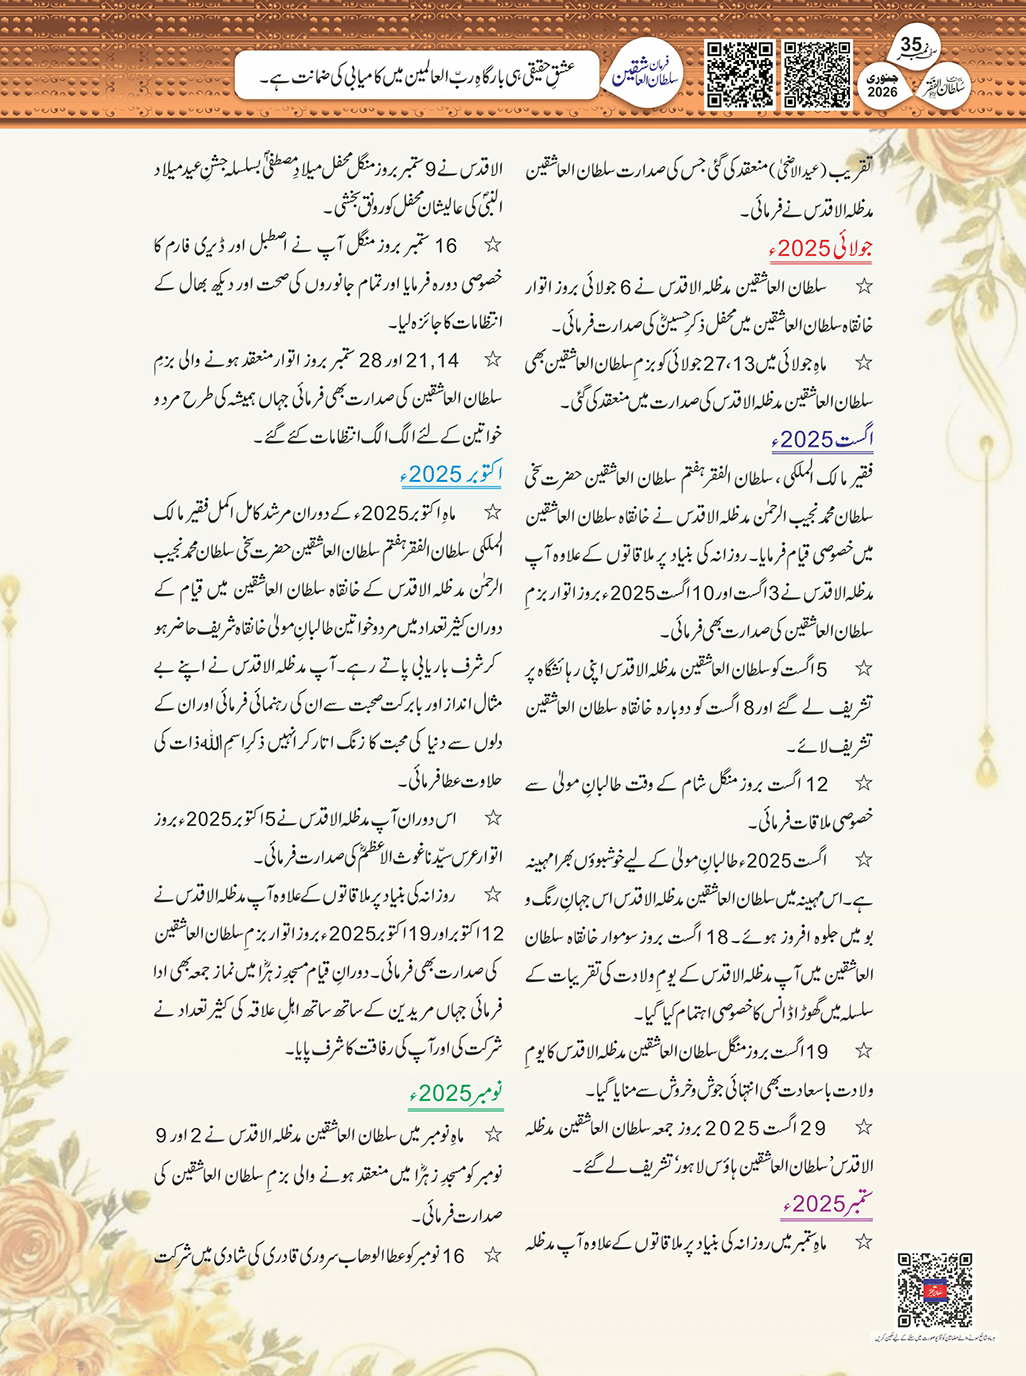 صفحہ نمبر 35
جنوری 2026
سلطان الفقر
فرمان سلطان العاشقین
عشقِ حقیقی ہی بارگاہِ ربّ العالمین میں کامیابی کی ضمانت ہے۔
تقریب (عید الاضحیٰ) منعقد کی گئی جس کی صدارت سلطان العاشقین
مدظلہ الاقدس نے فرمائی۔
جولائی 2025ء
☆ سلطان العاشقین مدظلہ الاقدس نے 6 جولائی بروز اتوار
خانقاہ سلطان العاشقین میں محفل ذکرِ حسینؓ کی صدارت فرمائی۔
☆ ماہِ جولائی میں 13،27 جولائی کو بزمِ سلطان العاشقین بھی
سلطان العاشقین مدظلہ الاقدس کی صدارت میں منعقد کی گئی۔
اگست 2025ء
فقیر مالک الملکی، سلطان الفقر ہفتم سلطان العاشقین حضرت سخی
سلطان محمد نجیب الرحمٰن مدظلہ الاقدس نے خانقاہ سلطان العاشقین
میں خصوصی قیام فرمایا۔ روزانہ کی بنیاد پر ملاقاتوں کے علاوہ آپ
مدظلہ الاقدس نے 3 اگست اور 10 اگست 2025ء بروز اتوار بزمِ
سلطان العاشقین کی صدارت بھی فرمائی۔
☆ 5 اگست کو سلطان العاشقین مدظلہ الاقدس اپنی رہائشگاہ پر
تشریف لے گئے اور 8 اگست کو دوبارہ خانقاہ سلطان العاشقین
تشریف لائے۔
☆ 12 اگست بروز منگل شام کے وقت طالبانِ مولیٰ سے
خصوصی ملاقات فرمائی۔
☆ اگست 2025ء طالبانِ مولیٰ کے لیے خوشبوؤں بھرا مہینہ
ہے۔ اس مہینہ میں سلطان العاشقین مدظلہ الاقدس اس جہانِ رنگ و
بو میں جلوہ افروز ہوئے۔ 18 اگست بروز سوموار خانقاہ سلطان
العاشقین میں آپ مدظلہ الاقدس کے یومِ ولادت کی تقریبات کے
سلسلہ میں گھوڑا ڈانس کا خصوصی اہتمام کیا گیا۔
☆ 19 اگست بروز منگل سلطان العاشقین مدظلہ الاقدس کا یومِ
ولادت باسعادت بھی انتہائی جوش و خروش سے منایا گیا۔
☆ 29 اگست 2025 بروز جمعہ سلطان العاشقین مدظلہ
الاقدس ’سلطان العاشقین ہاؤس لاہور‘ تشریف لے گئے۔
ستمبر 2025ء
☆ ماہِ ستمبر میں روزانہ کی بنیاد پر ملاقاتوں کے علاوہ آپ مدظلہ
الاقدس نے 9 ستمبر بروز منگل محفل میلادِ مصطفیؐ بسلسلہ جشنِ عید میلاد
النبیؐ کی عالیشان محفل کو رونق بخشی۔
☆ 16 ستمبر بروز منگل آپ نے اصطبل اور ڈیری فارم کا
خصوصی دورہ فرمایا اور تمام جانوروں کی صحت اور دیکھ بھال کے
انتظامات کا جائزہ لیا۔
☆ 21,14 اور 28 ستمبر بروز اتوار منعقد ہونے والی بزمِ
سلطان العاشقین کی صدارت بھی فرمائی جہاں ہمیشہ کی طرح مرد و
خواتین کے لئے الگ الگ انتظامات کئے گئے۔
اکتوبر 2025ء
☆ ماہِ اکتوبر 2025ء کے دوران مرشد کامل اکمل فقیر مالک
الملکی سلطان الفقر ہفتم سلطان العاشقین حضرت سخی سلطان محمد نجیب
الرحمٰن مدظلہ الاقدس کے خانقاہ سلطان العاشقین میں قیام کے
دوران کثیر تعداد میں مرد و خواتین طالبانِ مولیٰ خانقاہ شریف حاضر ہو
کر شرف باریابی پاتے رہے۔ آپ مدظلہ الاقدس نے اپنے بے
مثال انداز اور بابرکت صحبت سے ان کی رہنمائی فرمائی اور ان کے
دلوں سے دنیا کی محبت کا زنگ اتار کر انہیں ذکرِ اسمِ اللہ ذات کی
حلاوت عطا فرمائی۔
☆ اس دوران آپ مدظلہ الاقدس نے 5 اکتوبر 2025ء بروز
اتوار عرس سیّدنا غوث الاعظمؓ کی صدارت فرمائی۔
☆ روزانہ کی بنیاد پر ملاقاتوں کے علاوہ آپ مدظلہ الاقدس نے
12 اکتوبر اور 19 اکتوبر 2025ء بروز اتوار بزمِ سلطان العاشقین
کی صدارت بھی فرمائی۔ دورانِ قیام مسجدِ زہراؓ میں نماز جمعہ بھی ادا
فرمائی جہاں مریدین کے ساتھ ساتھ اہلِ علاقہ کی کثیر تعداد نے
شرکت کی اور آپ کی رفاقت کا شرف پایا۔
نومبر 2025ء
☆ ماہِ نومبر میں سلطان العاشقین مدظلہ الاقدس نے 2 اور 9
نومبر کو مسجدِ زہراؓ میں منعقد ہونے والی بزمِ سلطان العاشقین کی
صدارت فرمائی۔
☆ 16 نومبر کو عطا الوھاب سروری قادری کی شادی میں شرکت